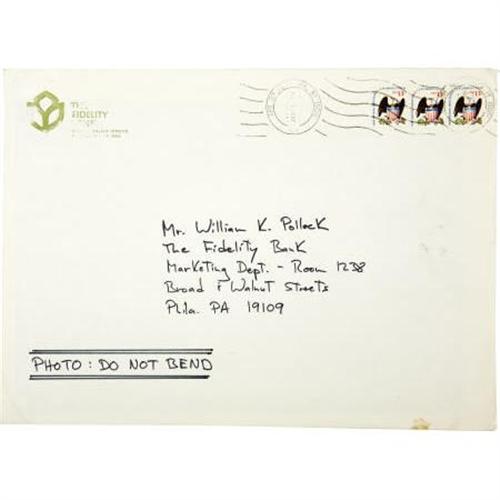 THE
FIDELITY
BANK
13
13
13
Mr. William K. Pollock
The Fidelity Bank
Marketing Dept. - Room 1238
Broad & Walnut Streets
Phila. PA 19109
PHOTO: DO NOT BEND